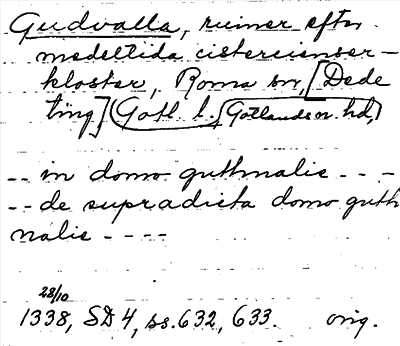 Gudvalla, ruiner efter
medeltida cistercienser-
kloster, Roma sn, [Dede
ting] (Gotl. l. Gotlands n. hd,)
-- in domo guthnalie - - -
-- de supradicta domo guth
nalie - - - -
28/10
1338, SD 4, ss. 632, 633. orig.